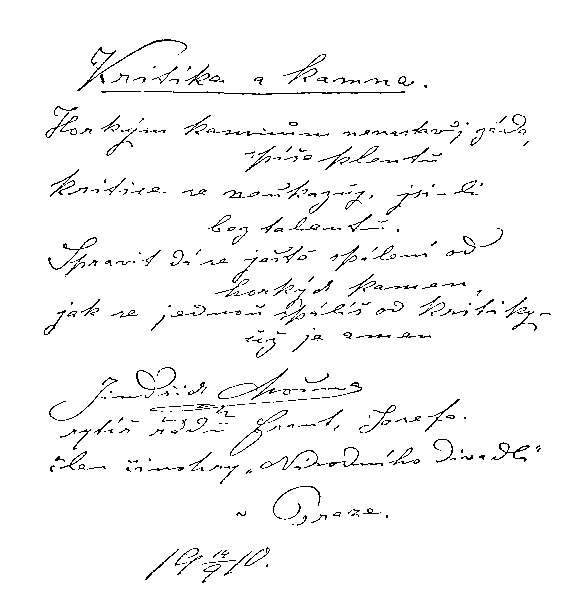 Kritika a kamna.
Horkým kamnům nenastavůj záda,
spíše plentu
kritice se neukazůj, jsi-li
bez talentu.
Spravit dá se ještě spálení od
horkých kamen,
jak se jednou spálíš od kritiky-
už je amen
Jindřich Mošna
rytíř řádu Frant. Josefa.
člen činohry „Národního divadla“
v Praze.
19 14/9 10.